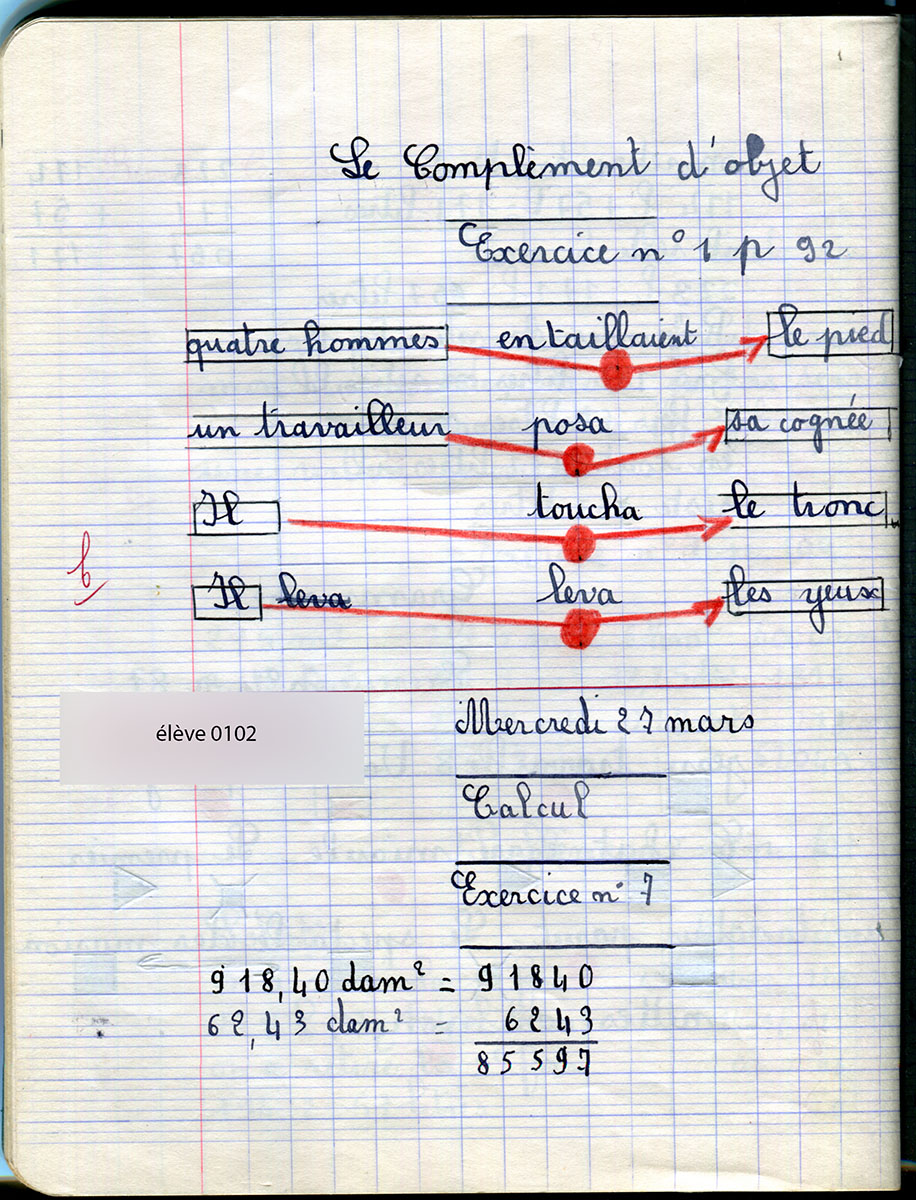 Le Complèment d'objet
Exercice n° 1 p 92
quatre hommes entaillaient le pied
un travailleur posa sa cognée
Il toucha le tronc
b
Il leva leva les yeux
élève 0102
Mercredi 27 mars
Calcul
Exercice n° 7
918,40 dam² = 91840
62,43 dam² = 6243
85597